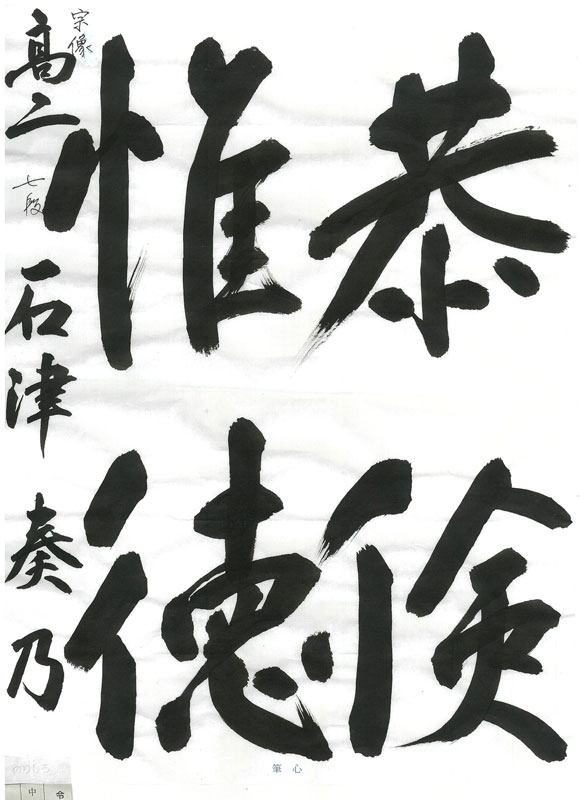 恭倹
惟徳
宗像
高二 七段 石津 奏乃
筆心
中 令